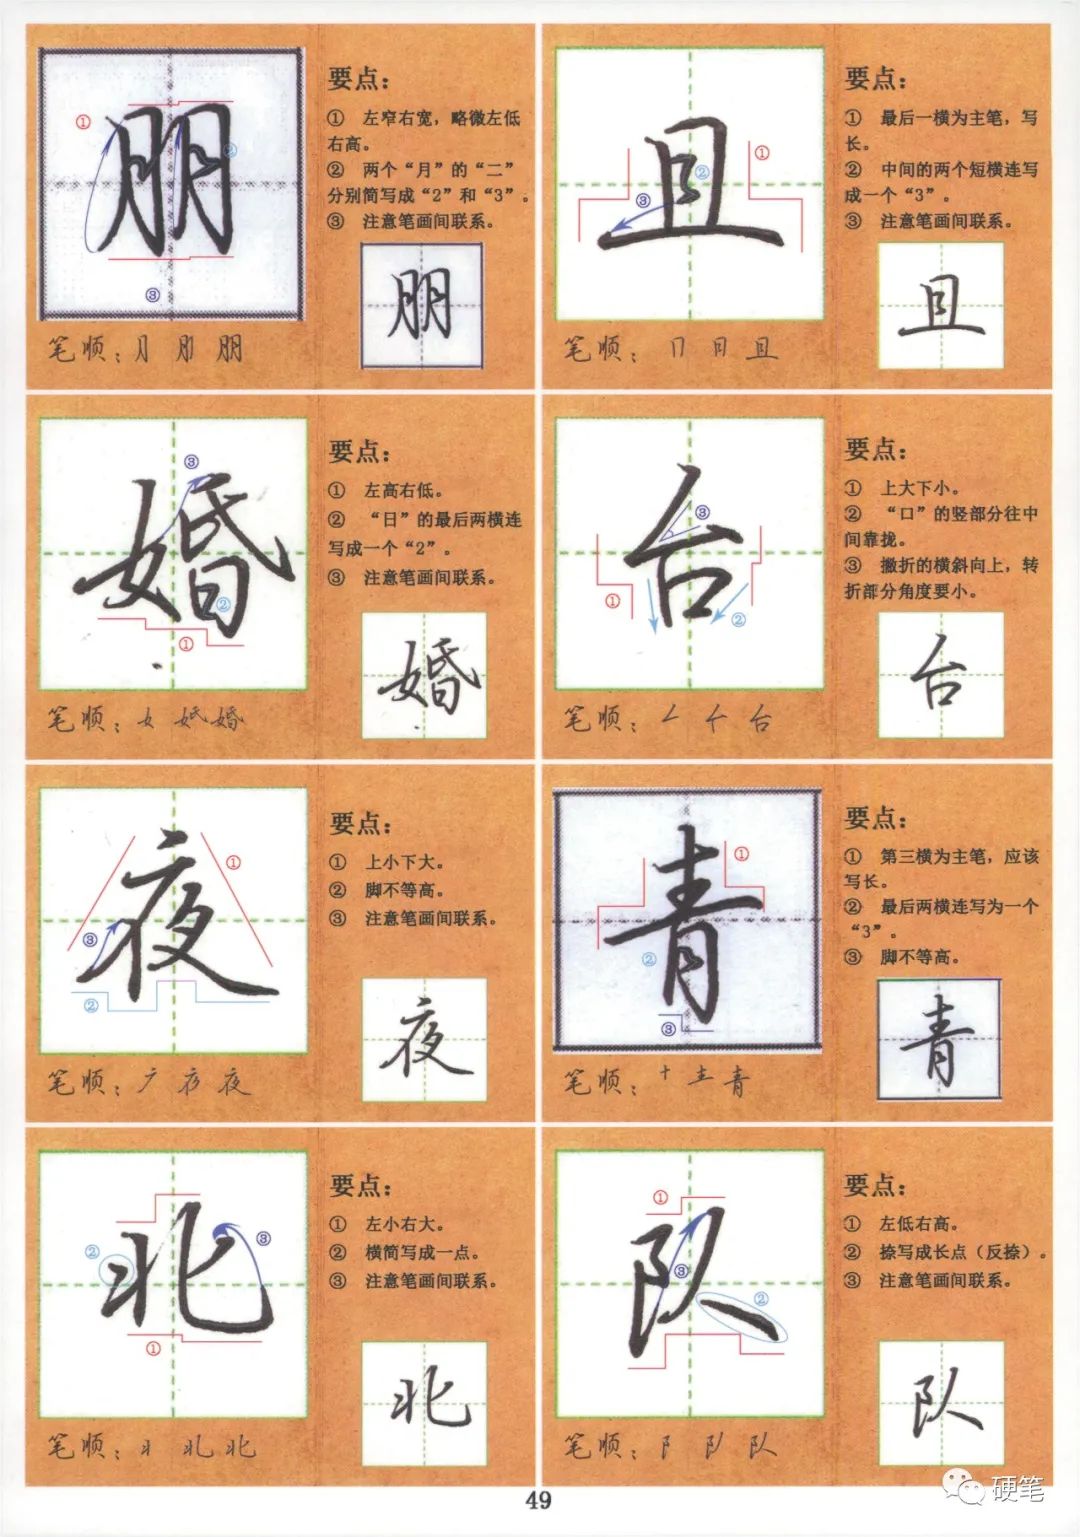 朋
①
②
③
要点：
① 左窄右宽，略微左低
右高。
② 两个“月”的“二”
分别简写成“2”和“3”。
③ 注意笔画间联系。
朋
笔顺：月 刖 朋
且
①
②
③
要点：
① 最后一横为主笔，写
长。
② 中间的两个短横连写
成一个“3”。
③ 注意笔画间联系。
且
笔顺：冂 日 且
婚
③
②
①
要点：
① 左高右低。
② “日”的最后两横连
写成一个“2”。
③ 注意笔画间联系。
婚
笔顺：女 婚
台
③
①
②
要点：
① 上大下小。
② “口”的竖部分往中
间靠拢。
③ 撇折的横斜向上，转
折部分角度要小。
台
笔顺：厶 台
夜
①
③
②
要点：
① 上小下大。
② 脚不等高。
③ 注意笔画间联系。
夜
笔顺：夜
青
①
②
③
要点：
① 第三横为主笔，应该
写长。
② 最后两横连写为一个
“3”。
③ 脚不等高。
青
笔顺：十 龶 青
北
②
③
①
要点：
① 左小右大。
② 横简写成一点。
③ 注意笔画间联系。
北
笔顺：北
队
①
③
②
要点：
① 左低右高。
② 捺写成长点（反捺）。
③ 注意笔画间联系。
队
笔顺：阝 队
49
硬笔